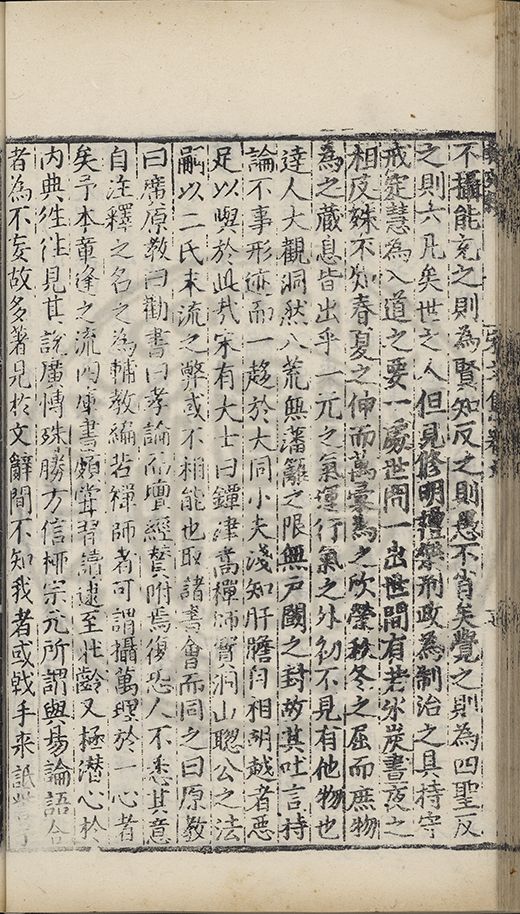 不攝能充之則為賢知反之則愚不肖矣覺之則為四聖反
之則六凡矣世之人但見修明禮樂刑政為制治之具持守
戒定慧為入道之要一處世間一出世間有若氷炭晝夜之
相反殊不知春夏之伸而萬彙為之欣榮秋冬之屈而庶物
為之藏息皆出乎一元之氣運行氣之外初不見有他物也
達人大觀洞然八荒無藩籬之限無戶閾之封故其吐言持
論不事形迹而一趨於大同小夫淺知肝膽自相胡越者惡
足以與於此哉宋有大士曰鐔津嵩禪師實洞山聰公之法
嗣以二氏末流之弊或不相能也取諸書會而同之曰原教
曰廣原教曰勸書曰孝論而壇經贊附焉復恐人不悉其意
自注釋之名之為輔教編若禪師者可謂攝萬理於一心者
矣予本章逢之流四庫書頗嘗習讀逮至壯齡又極潛心於
内典往往見其說廣博殊勝方信柳宗元所謂與易論語合
者為不妄故多著見於文辭間不知我者或戟手來詆訾